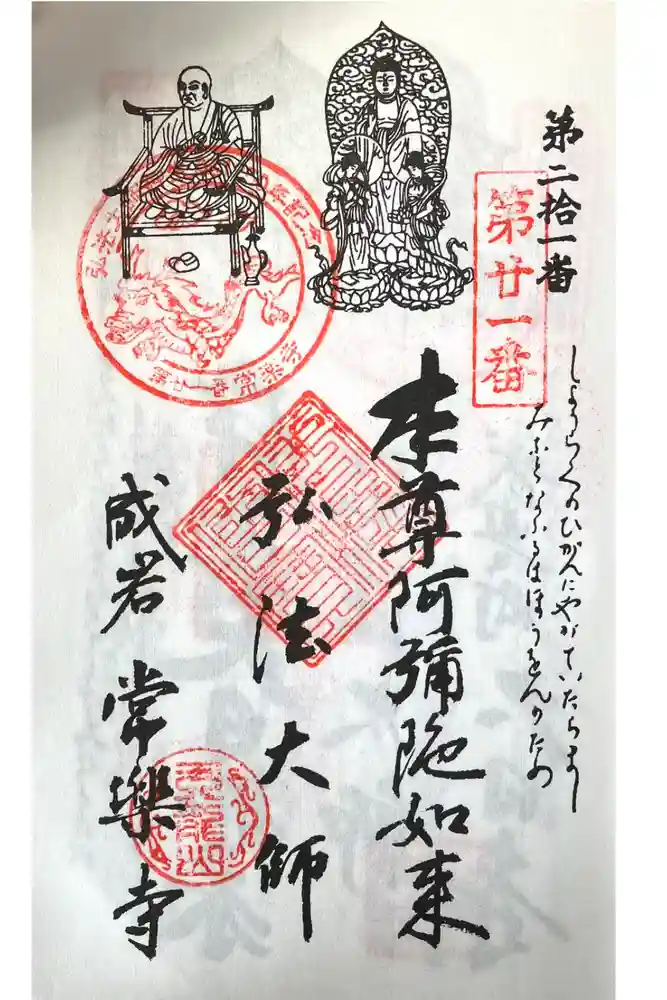 第二拾一番
第廿一番
しょうらくのひがんにやがていたらまし
みなとなふるはほうをんのため
本尊阿彌陀如来
弘法大師
成岩 常樂寺
第廿一番常楽寺